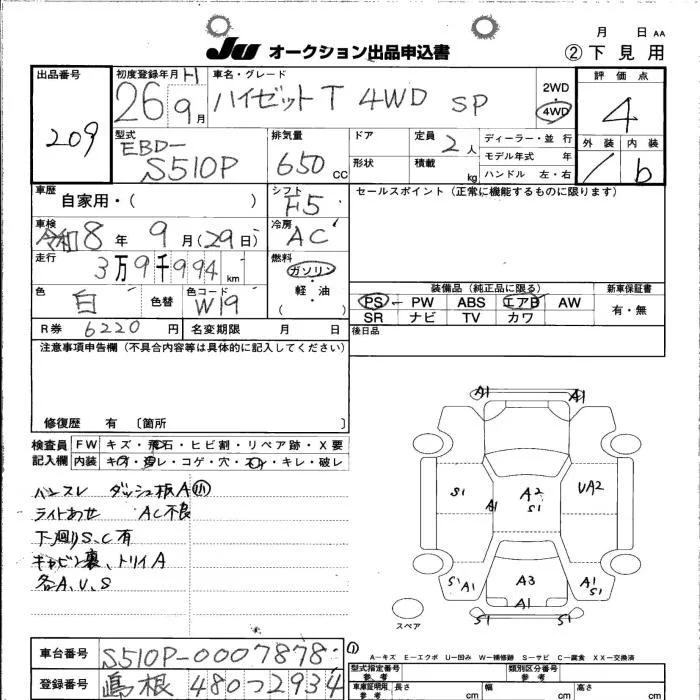 月 日 AA
JU オークション出品申込書 ② 下見用
出品番号 209
初度登録年月 H 26年 9月
車名・グレード ハイゼットT 4WD SP
2WD
4WD
評価点 4
外装 内装 b
型式 EBD-S510P
排気量 650 CC
ドア
形状
定員 2人
積載 kg
ディーラー・並 行
モデル年式 年
ハンドル 左・右
車歴 自家用・( )
シフト F5
セールスポイント(正常に機能するものに限ります)
車検 令和8年 9月(29日)
冷房 AC
走行 3万9千994 km
燃料 ガソリン・軽油 ( )
色 白
色替
色コード W19
装備品(純正品に限る)
PS PW ABS エアB AW
SR ナビ TV カワ
新車保証書 有・無
R券 6220円
名変期限 月 日
後日品
注意事項申告欄(不具合内容等は具体的に記入してください)
修復歴 有 〔箇所 〕
検査員記入欄
FW キズ・飛石・ヒビ割・リペア跡・X要
内装 キズ・汚レ・コゲ・穴・スレ・キレ・破レ
ハンスレ ダッシュ板A小
ライトあせ AC不良
下廻りS、C有
キャビン裏、トリイA
各A、U、S
A1 A1
S1 A1 A2 S1 UA2
S1 A1 A3 A1 A1 S1
S1 S1
スペア
A-キズ E-エクボ U-凹み W-補修跡 S-サビ C-腐食 XX-交換済
車台番号 S510P-0007878
①
型式指定番号 参考
類別区分番号 参考
登録番号 島根 480つ2934
車庫証明用 参考 長さ cm 幅 cm 高さ cm